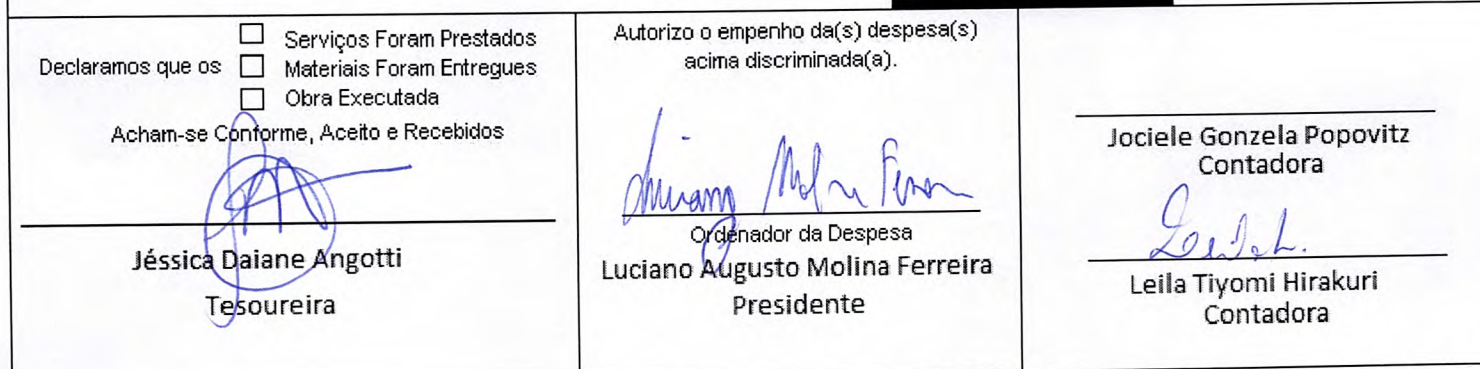 Declaramos que os
☐ Serviços Foram Prestados
☐ Materiais Foram Entregues
☐ Obra Executada
Acham-se Conforme, Aceito e Recebidos
Jéssica Daiane Angotti
Tesoureira
Autorizo o empenho da(s) despesa(s)
acima discriminada(a).
Ordenador da Despesa
Luciano Augusto Molina Ferreira
Presidente
Jociele Gonzela Popovitz
Contadora
Leila Tiyomi Hirakuri
Contadora